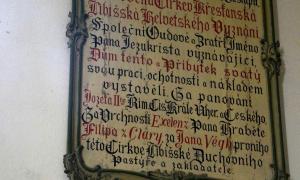 Cýrkev Křesťanská
Libišská Helvetského Vyznání
Společní Oudové a Zratří Jméno
Pána Jezukrista vyznávající,
Dům tento a Přibytek svatý
svou prací, ochotností a nákladem
vystavěli Za panování
Jozefa II. Řím. Cís. Krále Uher. a Českého
Za Vrchnosti Exelenz Pana Hraběte
Filipa z Clary, za Jana Végh prvního
této Církve Libišské Duchovního
Pastýře a zakladatele.